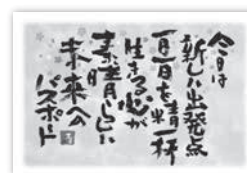 今日は
新しい出発点
一日一日を精一杯
生きる心が
素晴らしい
未来への
パスポート